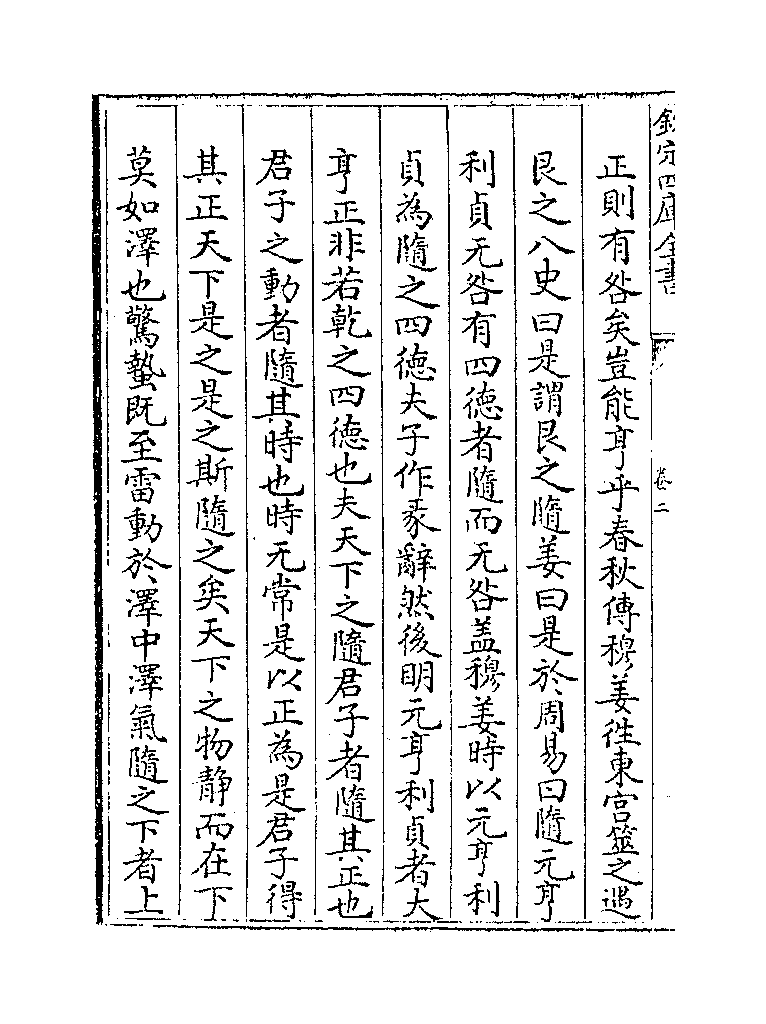 欽定四庫全書
卷二
正則有咎矣豈能亨乎春秋傳穆姜徃東宫筮之遇
艮之八史曰是謂艮之隨姜曰是於周易曰隨元亨
利貞无咎有四德者隨而无咎盖穆姜時以元亨利
貞為隨之四德夫子作彖辭然後明元亨利貞者大
亨正非若乾之四德也夫天下之隨君子者隨其正也
君子之動者隨其時也時无常是以正為是君子得
其正天下是之是之斯隨之矣天下之物静而在下
莫如澤也驚蟄既至雷動於澤中澤氣隨之下者上